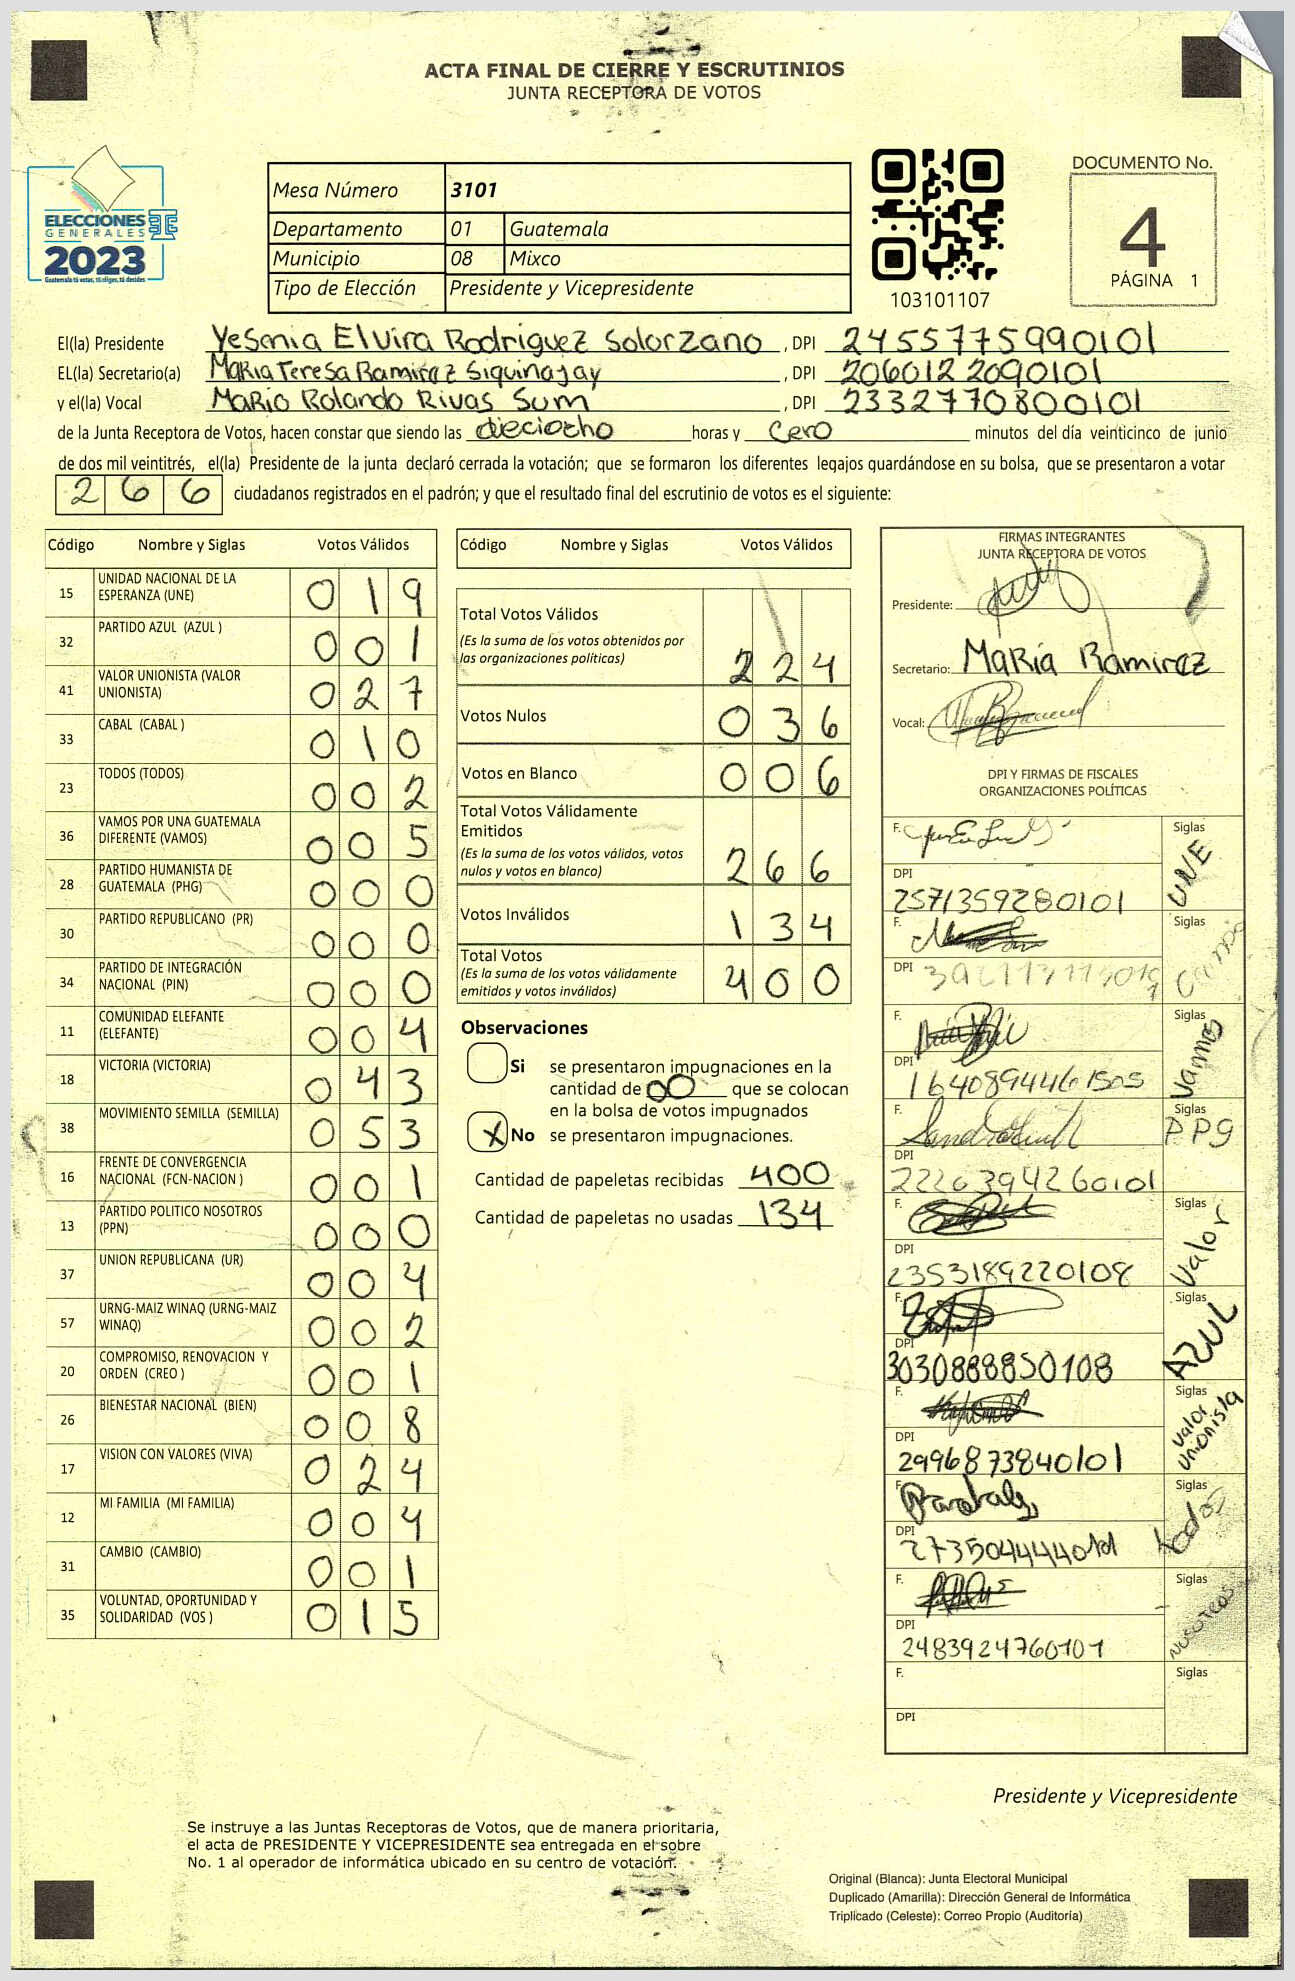 ACTA FINAL DE CIERRE Y ESCRUTINIOS
JUNTA RECEPTORA DE VOTOS
ELECCIONES
GENERALES
2023
Guatemala tú votas, tú eliges, tú decides
TSE
Mesa Número 3101
Departamento 01 Guatemala
Municipio 08 Mixco
Tipo de Elección Presidente y Vicepresidente
103101107
DOCUMENTO No.
4
PÁGINA 1
El(la) Presidente Yesenia Elvira Rodriguez Solorzano , DPI 2455775990101
EL(la) Secretario(a) Maria Teresa Ramirez Siquinajay , DPI 2060122090101
y el(la) Vocal Mario Rolando Rivas Sum , DPI 2332770800101
de la Junta Receptora de Votos, hacen constar que siendo las dieciocho horas y cero minutos del día veinticinco de junio
de dos mil veintitrés, el(la) Presidente de la junta declaró cerrada la votación; que se formaron los diferentes legajos guardándose en su bolsa, que se presentaron a votar
266 ciudadanos registrados en el padrón; y que el resultado final del escrutinio de votos es el siguiente:
Código Nombre y Siglas Votos Válidos
15 UNIDAD NACIONAL DE LA ESPERANZA (UNE) 019
32 PARTIDO AZUL (AZUL ) 001
41 VALOR UNIONISTA (VALOR UNIONISTA) 027
33 CABAL (CABAL ) 010
23 TODOS (TODOS) 002
36 VAMOS POR UNA GUATEMALA DIFERENTE (VAMOS) 005
28 PARTIDO HUMANISTA DE GUATEMALA (PHG) 000
30 PARTIDO REPUBLICANO (PR) 000
34 PARTIDO DE INTEGRACIÓN NACIONAL (PIN) 000
11 COMUNIDAD ELEFANTE (ELEFANTE) 004
18 VICTORIA (VICTORIA) 043
38 MOVIMIENTO SEMILLA (SEMILLA) 053
16 FRENTE DE CONVERGENCIA NACIONAL (FCN-NACION ) 001
13 PARTIDO POLITICO NOSOTROS (PPN) 000
37 UNION REPUBLICANA (UR) 004
57 URNG-MAIZ WINAQ (URNG-MAIZ WINAQ) 002
20 COMPROMISO, RENOVACION Y ORDEN (CREO ) 001
26 BIENESTAR NACIONAL (BIEN) 008
17 VISION CON VALORES (VIVA) 024
12 MI FAMILIA (MI FAMILIA) 004
31 CAMBIO (CAMBIO) 001
35 VOLUNTAD, OPORTUNIDAD Y SOLIDARIDAD (VOS ) 015
Código Nombre y Siglas Votos Válidos
Total Votos Válidos
(Es la suma de los votos obtenidos por
las organizaciones políticas) 224
Votos Nulos 036
Votos en Blanco 006
Total Votos Válidamente
Emitidos
(Es la suma de los votos válidos, votos
nulos y votos en blanco) 266
Votos Inválidos 134
Total Votos
(Es la suma de los votos válidamente
emitidos y votos inválidos) 400
Observaciones
Si se presentaron impugnaciones en la
cantidad de 00 que se colocan
en la bolsa de votos impugnados
X No se presentaron impugnaciones.
Cantidad de papeletas recibidas 400
Cantidad de papeletas no usadas 134
FIRMAS INTEGRANTES
JUNTA RECEPTORA DE VOTOS
Presidente:
Secretario: Maria Ramirez
Vocal:
DPI Y FIRMAS DE FISCALES
ORGANIZACIONES POLÍTICAS
F. Siglas UNE
DPI 2571359280101
F. Siglas
DPI
F. Siglas Vamos
DPI 1640894461505
F. Siglas PPG
DPI 2226394260101
F. Siglas Valor
DPI 2353189220108
F. Siglas AZUL
DPI 3030888850108
F. Siglas Valor Unionista
DPI 2996873840101
F. Siglas todos
DPI
F. Siglas NOSOTROS
DPI 2483924760101
F. Siglas
DPI
Presidente y Vicepresidente
Se instruye a las Juntas Receptoras de Votos, que de manera prioritaria,
el acta de PRESIDENTE Y VICEPRESIDENTE sea entregada en el sobre
No. 1 al operador de informática ubicado en su centro de votación.
Original (Blanca): Junta Electoral Municipal
Duplicado (Amarilla): Dirección General de Informática
Triplicado (Celeste): Correo Propio (Auditoría)